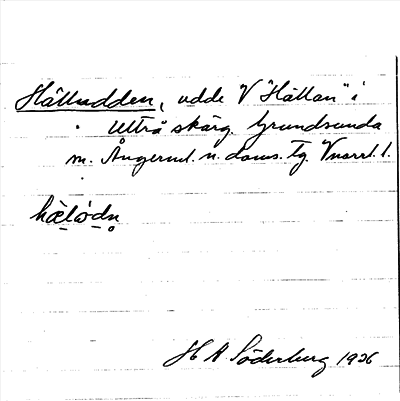 Hälludden, udde V "Hällan" i
Ulvö skärg. Grundsunda
m. Ångerml. n. doms. tg. Vnorrl. l.
hælodn
H A Söderberg 1926